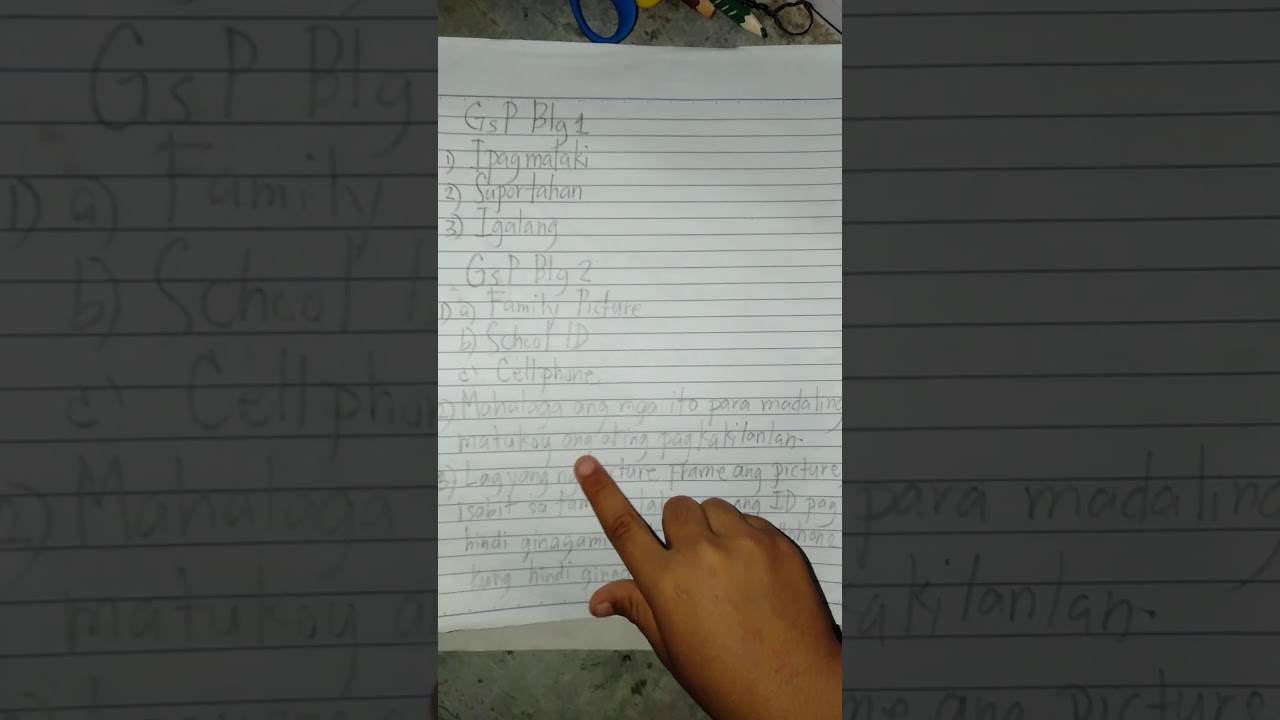 GsP Blg 1
1) Ipagmalaki
2) Suportahan
3) Igalang
GsP Blg 2
1) a) Family Picture
b) School ID
c) Cellphone
2) Mahalaga ang mga ito para madaling
matukoy ang ating pagkakilanlan.
3) Lagyang ng frame ang picture
isabit sa ang ID pag
hindi
kung hindi